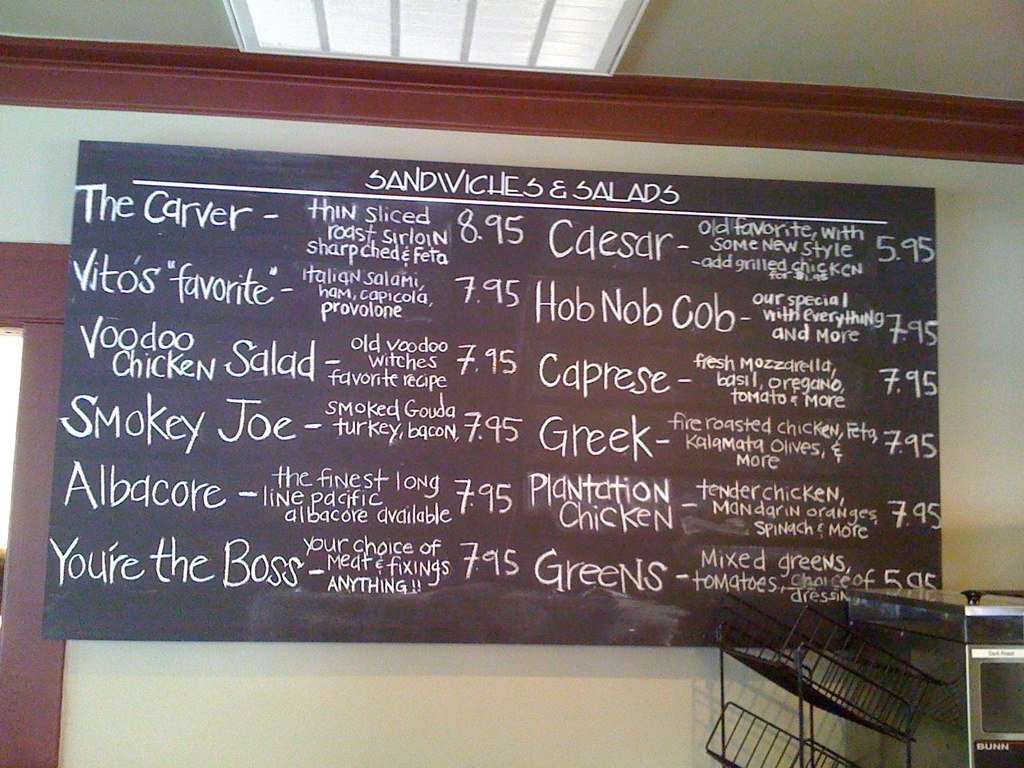 SANDWICHES & SALADS
The Carver - thin sliced 8.95
roast sirloin
sharp ched & feta
Vito's "favorite" - Italian salami, 7.95
ham, capicola,
provolone
Voodoo
Chicken Salad - old voodoo 7.95
witches
favorite recipe
Smokey Joe - smoked Gouda
turkey, bacon, 7.95
Albacore - the finest long 7.95
line pacific
albacore available
You're the Boss - your choice of 7.95
meat & fixings
ANYTHING!!
Caesar - old favorite, with 5.95
some new style
- add grilled chicken
for
Hob Nob Cob - our special 7.95
with everything
and more
Caprese - fresh mozzarella, 7.95
basil, oregano,
tomato & more
Greek - fire roasted chicken, feta, 7.95
Kalamata olives, &
more
Plantation
Chicken - tender chicken, 7.95
mandarin oranges,
spinach & more
Greens - Mixed greens, 5.95
tomatoes, choice of
dressing
Dark Roast
BUNN